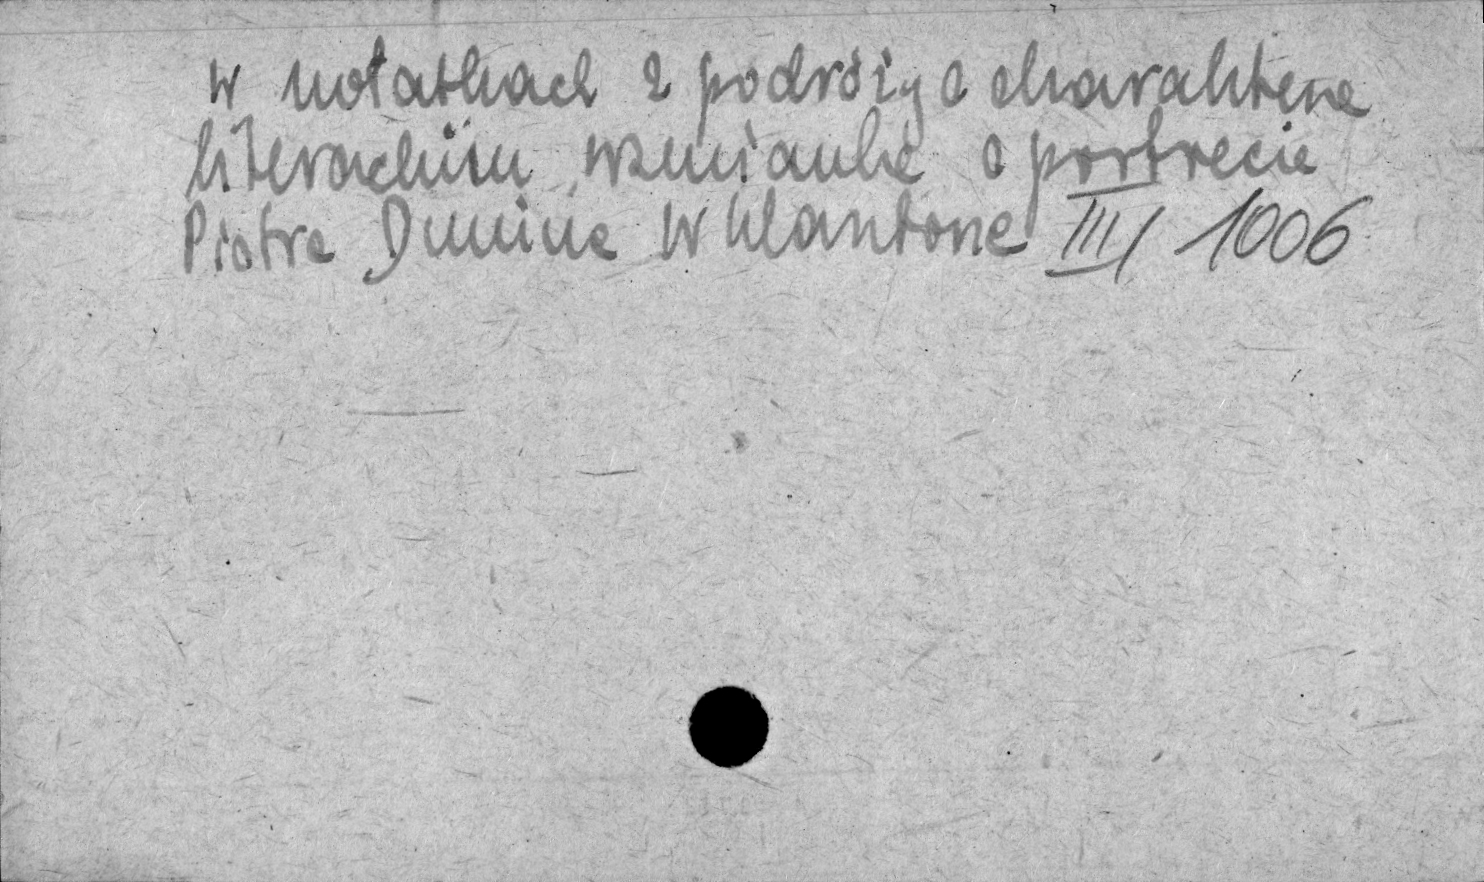 w notatkach z podróży o charakterze
literackim wzmianka o portrecie
Piotra Dunina w klasztorze III/ 1006